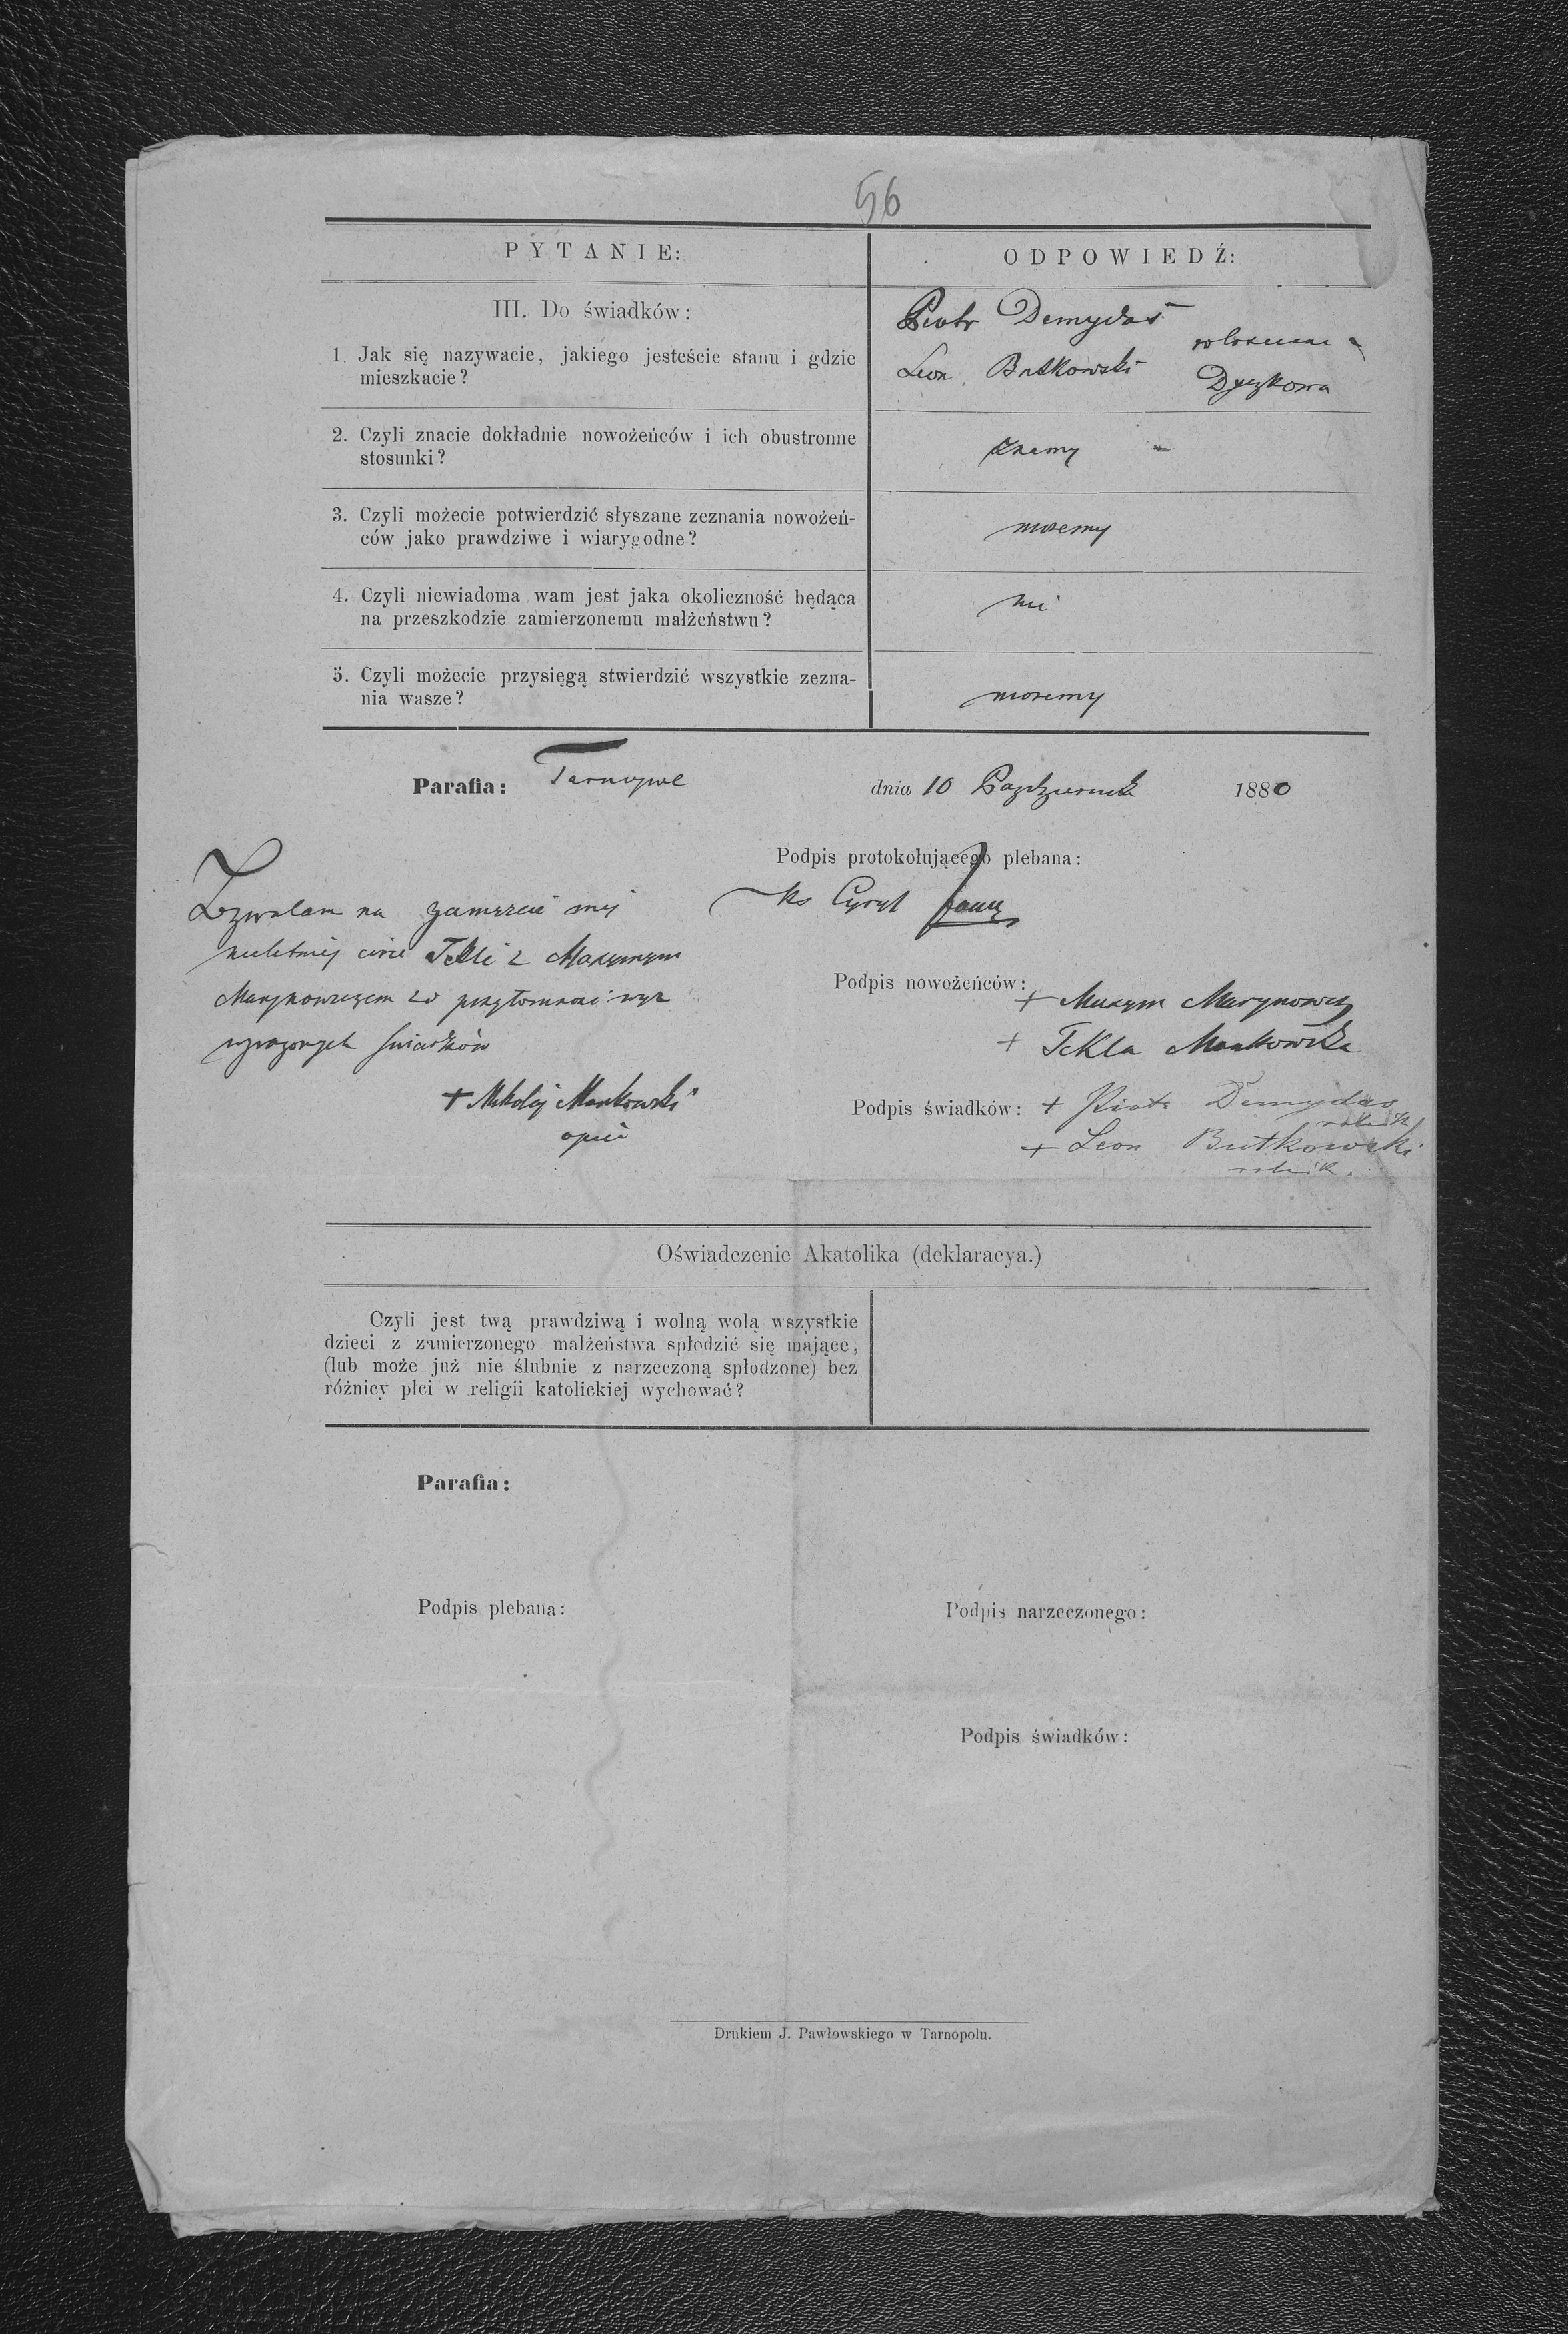 56
PYTANIE:
ODPOWIEDŹ:
III. Do świadków:
1. Jak się nazywacie, jakiego jesteście stanu i gdzie
mieszkacie?
Piotr Demydaś
Leon Butkowski
Dyczkowa
2. Czyli znacie dokładnie nowożeńców i ich obustronne
stosunki?
znamy
3. Czyli możecie potwierdzić słyszane zeznania nowożeń-
ców jako prawdziwe i wiarygodne?
możemy
4. Czyli niewiadoma wam jest jaka okoliczność będąca
na przeszkodzie zamierzonemu małżeństwu?
nie
5. Czyli możecie przysięgą stwierdzić wszystkie zezna-
nia wasze?
możemy
Parafia: Tarnopol
dnia 10 Października 1880
Podpis protokołującego plebana:
ks Cyryl
Zezwalam na zamężcie mej
nieletniej córce Tekli z Maxymem
Marynowiczem w przytomności wyż
wyrażonych świadków
+ Mikołaj Mankowski
ojciec
Podpis nowożeńców:
+ Maxym Marynowicz
+ Tekla Mankowska
Podpis świadków: + Piotr Demydas
rolnik
+ Leon Butkowski
rolnik.
Oświadczenie Akatolika (deklaracya.)
Czyli jest twą prawdziwą i wolną wolą wszystkie
dzieci z zamierzonego małżeństwa spłodzić się mające,
(lub może już nie ślubnie z narzeczoną spłodzone) bez
różnicy płci w religii katolickiej wychować?
Parafia:
Podpis plebana:
Podpis narzeczonego:
Podpis świadków:
Drukiem J. Pawłowskiego w Tarnopolu.